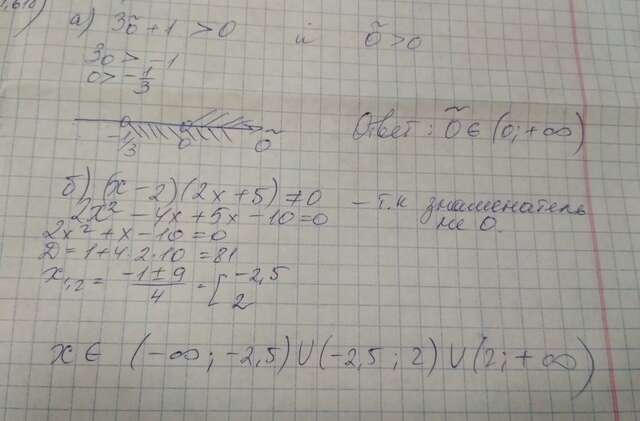 а) 3õ + 1 > 0 и õ > 0
3õ > -1
õ > -1/3
-1/3 0 õ
Ответ: õ ∈ (0; +∞)
б) (x - 2)(2x + 5) ≠ 0 - т.к знаменатель не 0.
2x² - 4x + 5x - 10 = 0
2x² + x - 10 = 0
Д = 1 + 4·2·10 = 81
x₁,₂ = (-1 ± 9)/4 = [-2,5
2
x ∈ (-∞; -2,5) U (-2,5; 2) U (2; +∞)